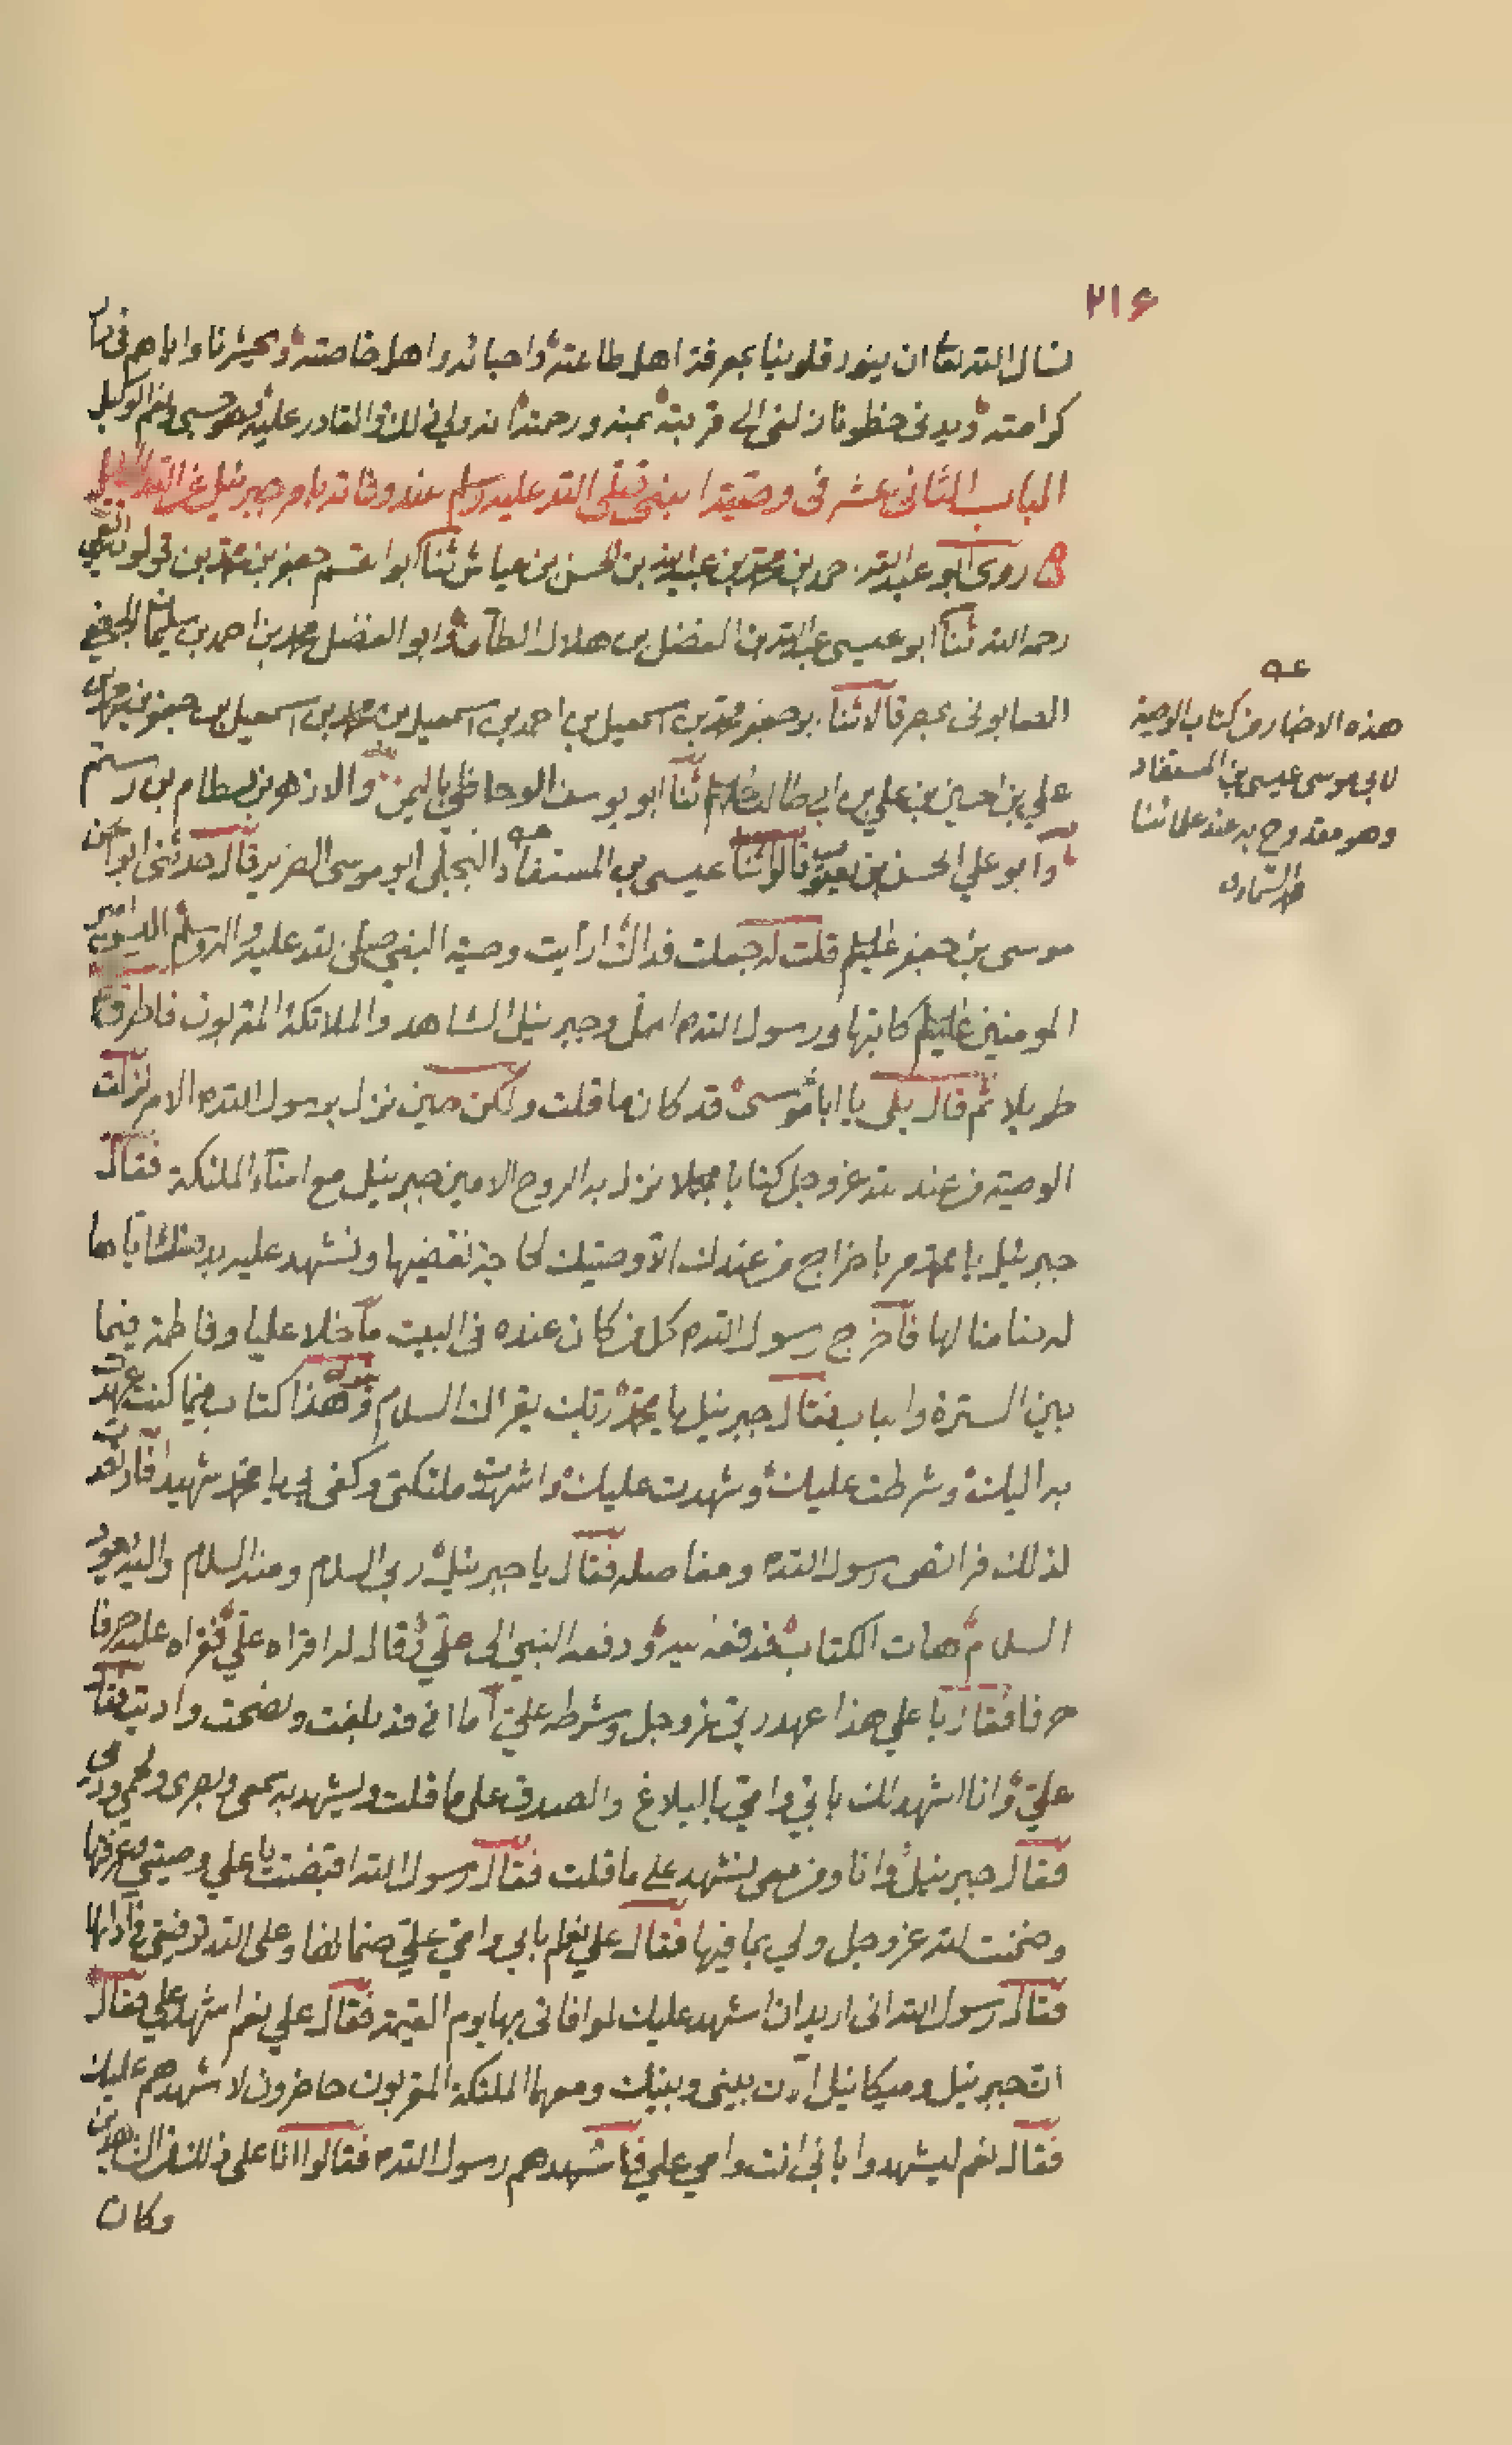 ٢١۶
نسال الله تعا ان ينور قلوبنا بمعرفة اهل طاعته واحبائه واهل خاصته ويحشرنا واياهم في دار
كرامته ويدني حظوظنا زلفى الى قربته بمنه ورحمته انه ولي ذلك والقادر عليه وهو حسبي ونعم الوكيل
الباب الثاني عشر في وصية النبي صلى الله عليه وسلم عند وفاته بامر جبرئيل عن الله الجليل
روى ابو عبد الله احمد بن محمد بن عبيد الله بن الحسن بن عياش ثنا ابو القسم جعفر بن محمد بن قولويه القمي
رحمه الله ثنا ابو عيسى عبيد الله بن الفضل بن هلال الطائي وابو الفضل محمد بن احمد بن سليمان الجعفي
الصابوني بمصر قالا ثنا ابو جعفر محمد بن اسمعيل بن احمد بن اسمعيل بن محمد بن اسمعيل بن جعفر بن محمد بن
علي بن الحسين بن علي بن ابي طالب عليهم السلام ثنا ابو يوسف الوحاظي باليمن والازهر بن بسطام بن رستم
وابو علي الحسن بن يعقوب قالوا ثنا عيسى بن المستفاد البجلي ابو موسى الضرير قال حدثني ابو الحسن
موسى بن جعفر عليهم قلت له جعلت فداك ارايت وصية النبي صلى الله عليه واله وسلم اليس امير
المومنين عليه السلام كاتبها ورسول الله م املى وجبرئيل الشاهد والملائكة المقربون فاطرق
طويلا ثم قال بلى يا ابا موسى قد كان ما قلت ولكن حين نزل برسول الله م الامر نزلت
الوصية من عند الله عز وجل كتابا مجملا نزل به الروح الامين جبرئيل مع امناء الملئكة فقال
جبرئيل يا محمد مر باخراج من عندك الا وصيك لحاجة نقضيها ونشهد عليه بدفعك اياها
له ضامنا لها فاخرج رسول الله م كل من كان عنده في البيت ما خلا عليا وفاطمة فيما
بين السترة والباب فقال جبرئيل يا محمد ربك يقرئك السلام وهذا كتاب بما كنت عهدت
به اليك وشرطت عليك وشهدت عليك واشهدت ملئكتي وكفى بي يا محمد شهيدا فارتعدت
لذلك فرائص رسول الله م ومفاصله فقال يا جبرئيل ربي السلام ومنه السلام واليه يعود
السلام هات الكتاب فدفعه بيده ودفعه النبي الى علي وقال له اقراه علي فقراه عليه حرفا
حرفا فقال يا علي هذا عهد ربي عز وجل وشرطه علي اما اني قد بلغت ونصحت واديت فقال
علي وانا اشهد لك بابي وامي بالبلاغ والصدق على ما قلت ويشهد به سمعي وبصري ولحمي ودمي
فقال جبرئيل وانا ومن معي لنشهد على ما قلت فقال رسول الله اقبضت يا علي وصيتي وعرفتها
وضمنت لله عز وجل ولي بما فيها فقال علي نعم بابي وامي علي ضمانها وعلى الله توفيقي في ادائها
فقال رسول الله اني اريد ان اشهد عليك لموافاتي بها يوم القيمة فقال علي نعم اشهد علي فقال
ان جبرئيل وميكائيل الان بيني وبينك ومعهما الملئكة المقربون حاضرون لاشهدهم عليك
فقال نعم ليشهدوا بابي انت وامي علي فاشهدهم رسول الله م فقالوا انا على ذلك من الشاهدين
وكان
هذه الاخبار من كتاب الوصية
لابي موسى عيسى بن المستفاد
وهو مقدوح به عند علمائنا